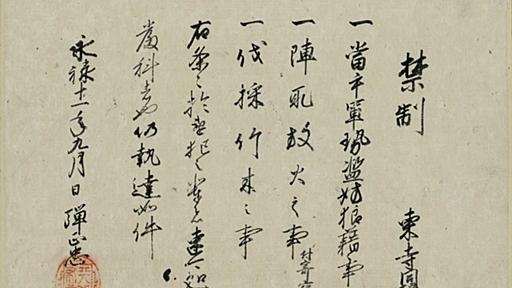 禁制 東寺
一當手軍勢濫妨狼藉事
一陣取放火之事
一伐採竹木之事
右条々於違犯之輩者速可処
嚴科者也仍執達如件
永禄十一年九月日 弾正忠